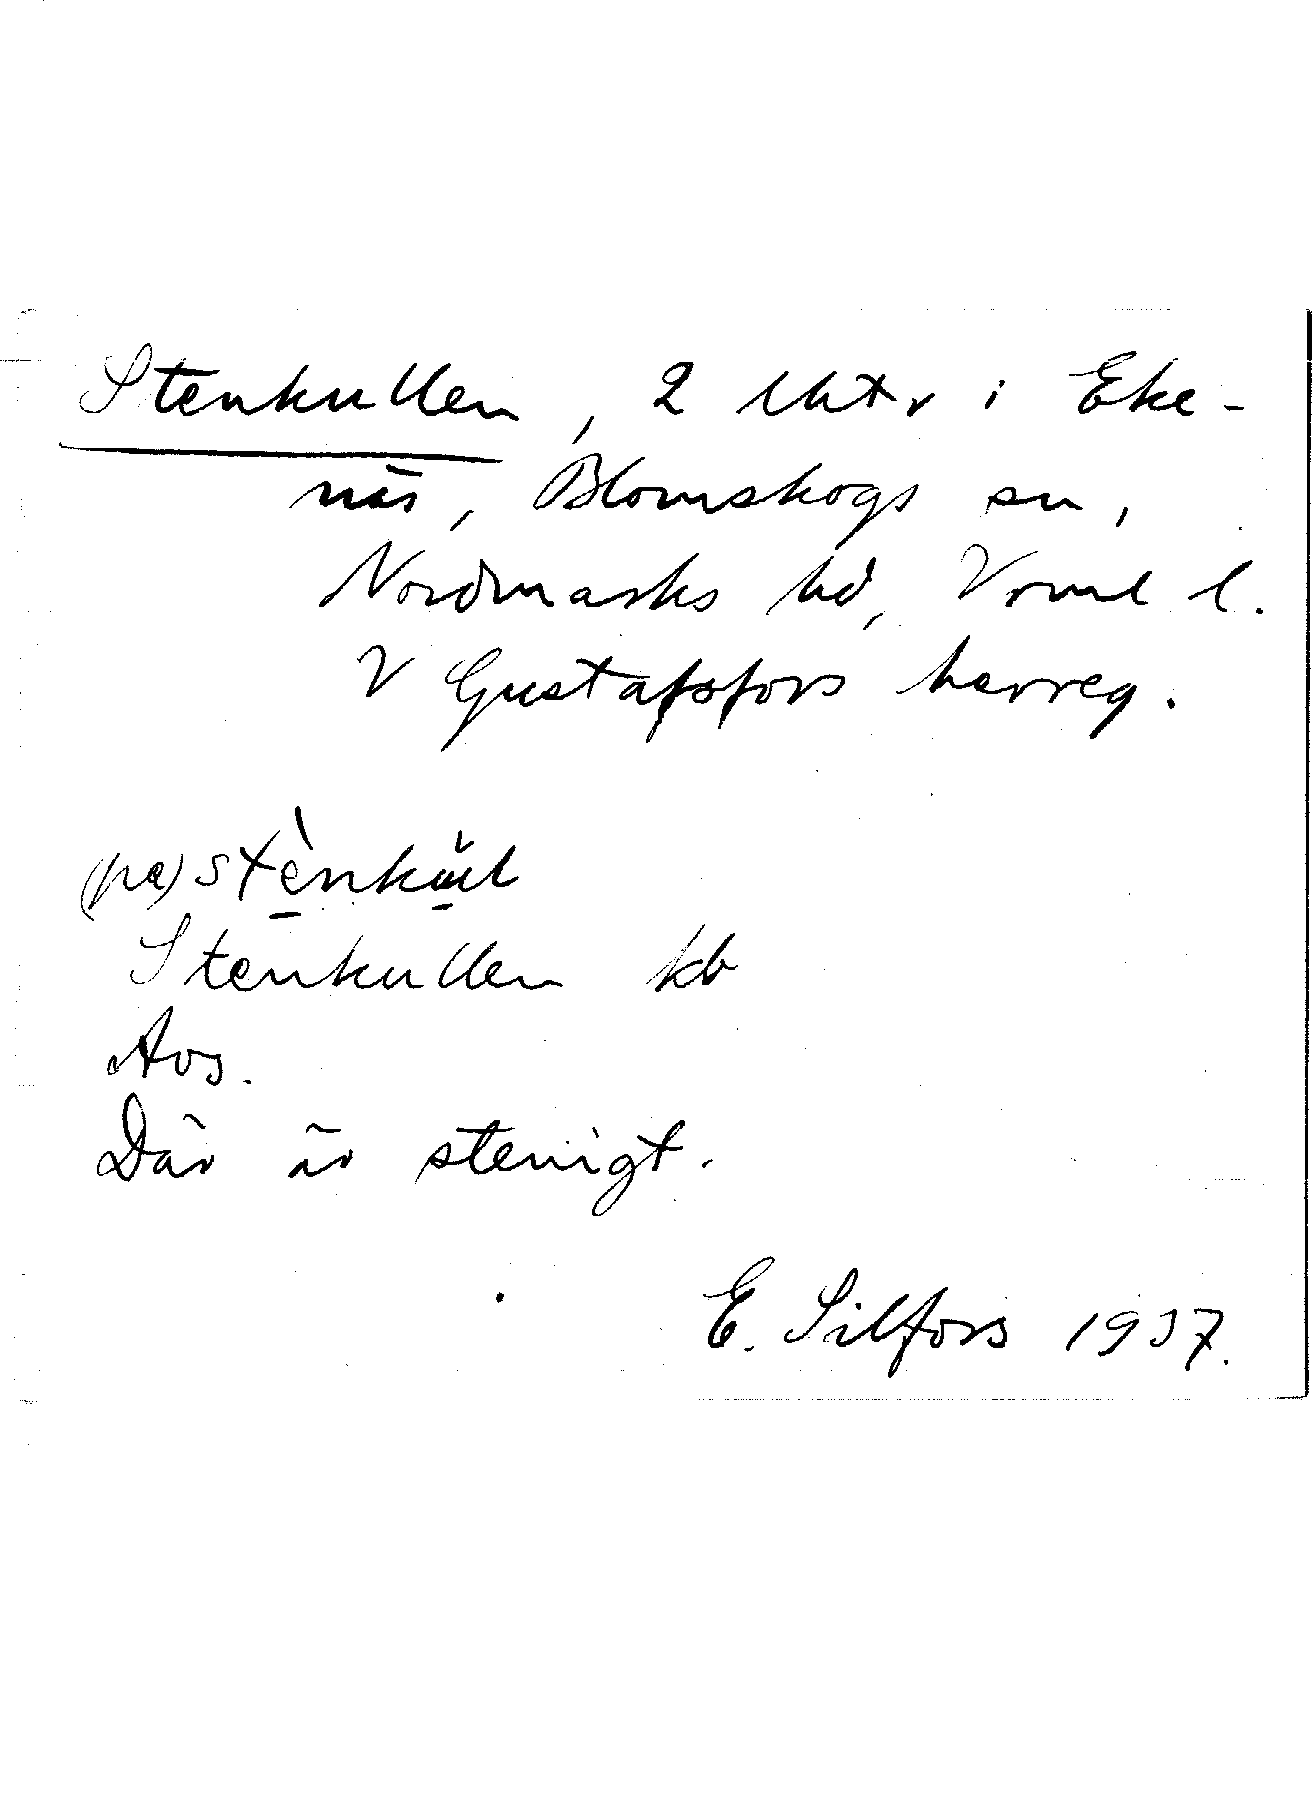 Stenkullen, 2 lht.r i Eke-
näs, Blomskogs sn,
Nordmarks hd, Vrml l.
V Gustafsfors herreg.
(pa) stènkul
Stenkullen kb
Avs.
Där är stenigt.
E. Silfors 1937.